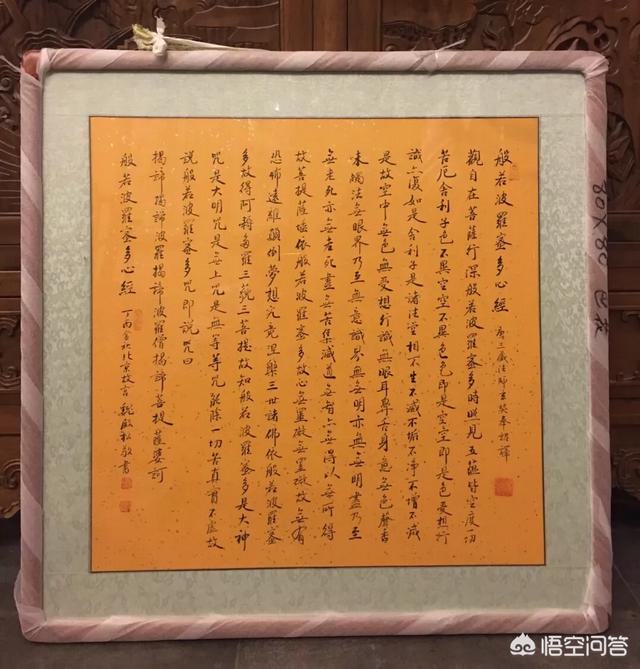 般若波羅蜜多心經 唐三藏法師玄奘奉詔譯
觀自在菩薩行深般若波羅蜜多時照見五蘊皆空度一切
苦厄舍利子色不異空空不異色色即是空空即是色受想行
識亦復如是舍利子是諸法空相不生不滅不垢不净不增不減
是故空中無色無受想行識無眼耳鼻舌身意無色聲香
味觸法無眼界乃至無意識界無無明亦無無明盡乃至
無老死亦無老死盡無苦集滅道無智亦無得以無所得
故菩提薩埵依般若波羅蜜多故心無罣礙無罣礙故無有
恐怖遠離顛倒夢想究竟涅槃三世諸佛依般若波羅蜜
多故得阿耨多羅三藐三菩提故知般若波羅蜜多是大神
咒是大明咒是無上咒是無等等咒能除一切苦真實不虛故
說般若波羅蜜多咒即說咒曰
揭諦揭諦波羅揭諦波羅僧揭諦菩提薩婆訶
般若波羅蜜多心經 北京故宮 敬書
80X80
悟空问答